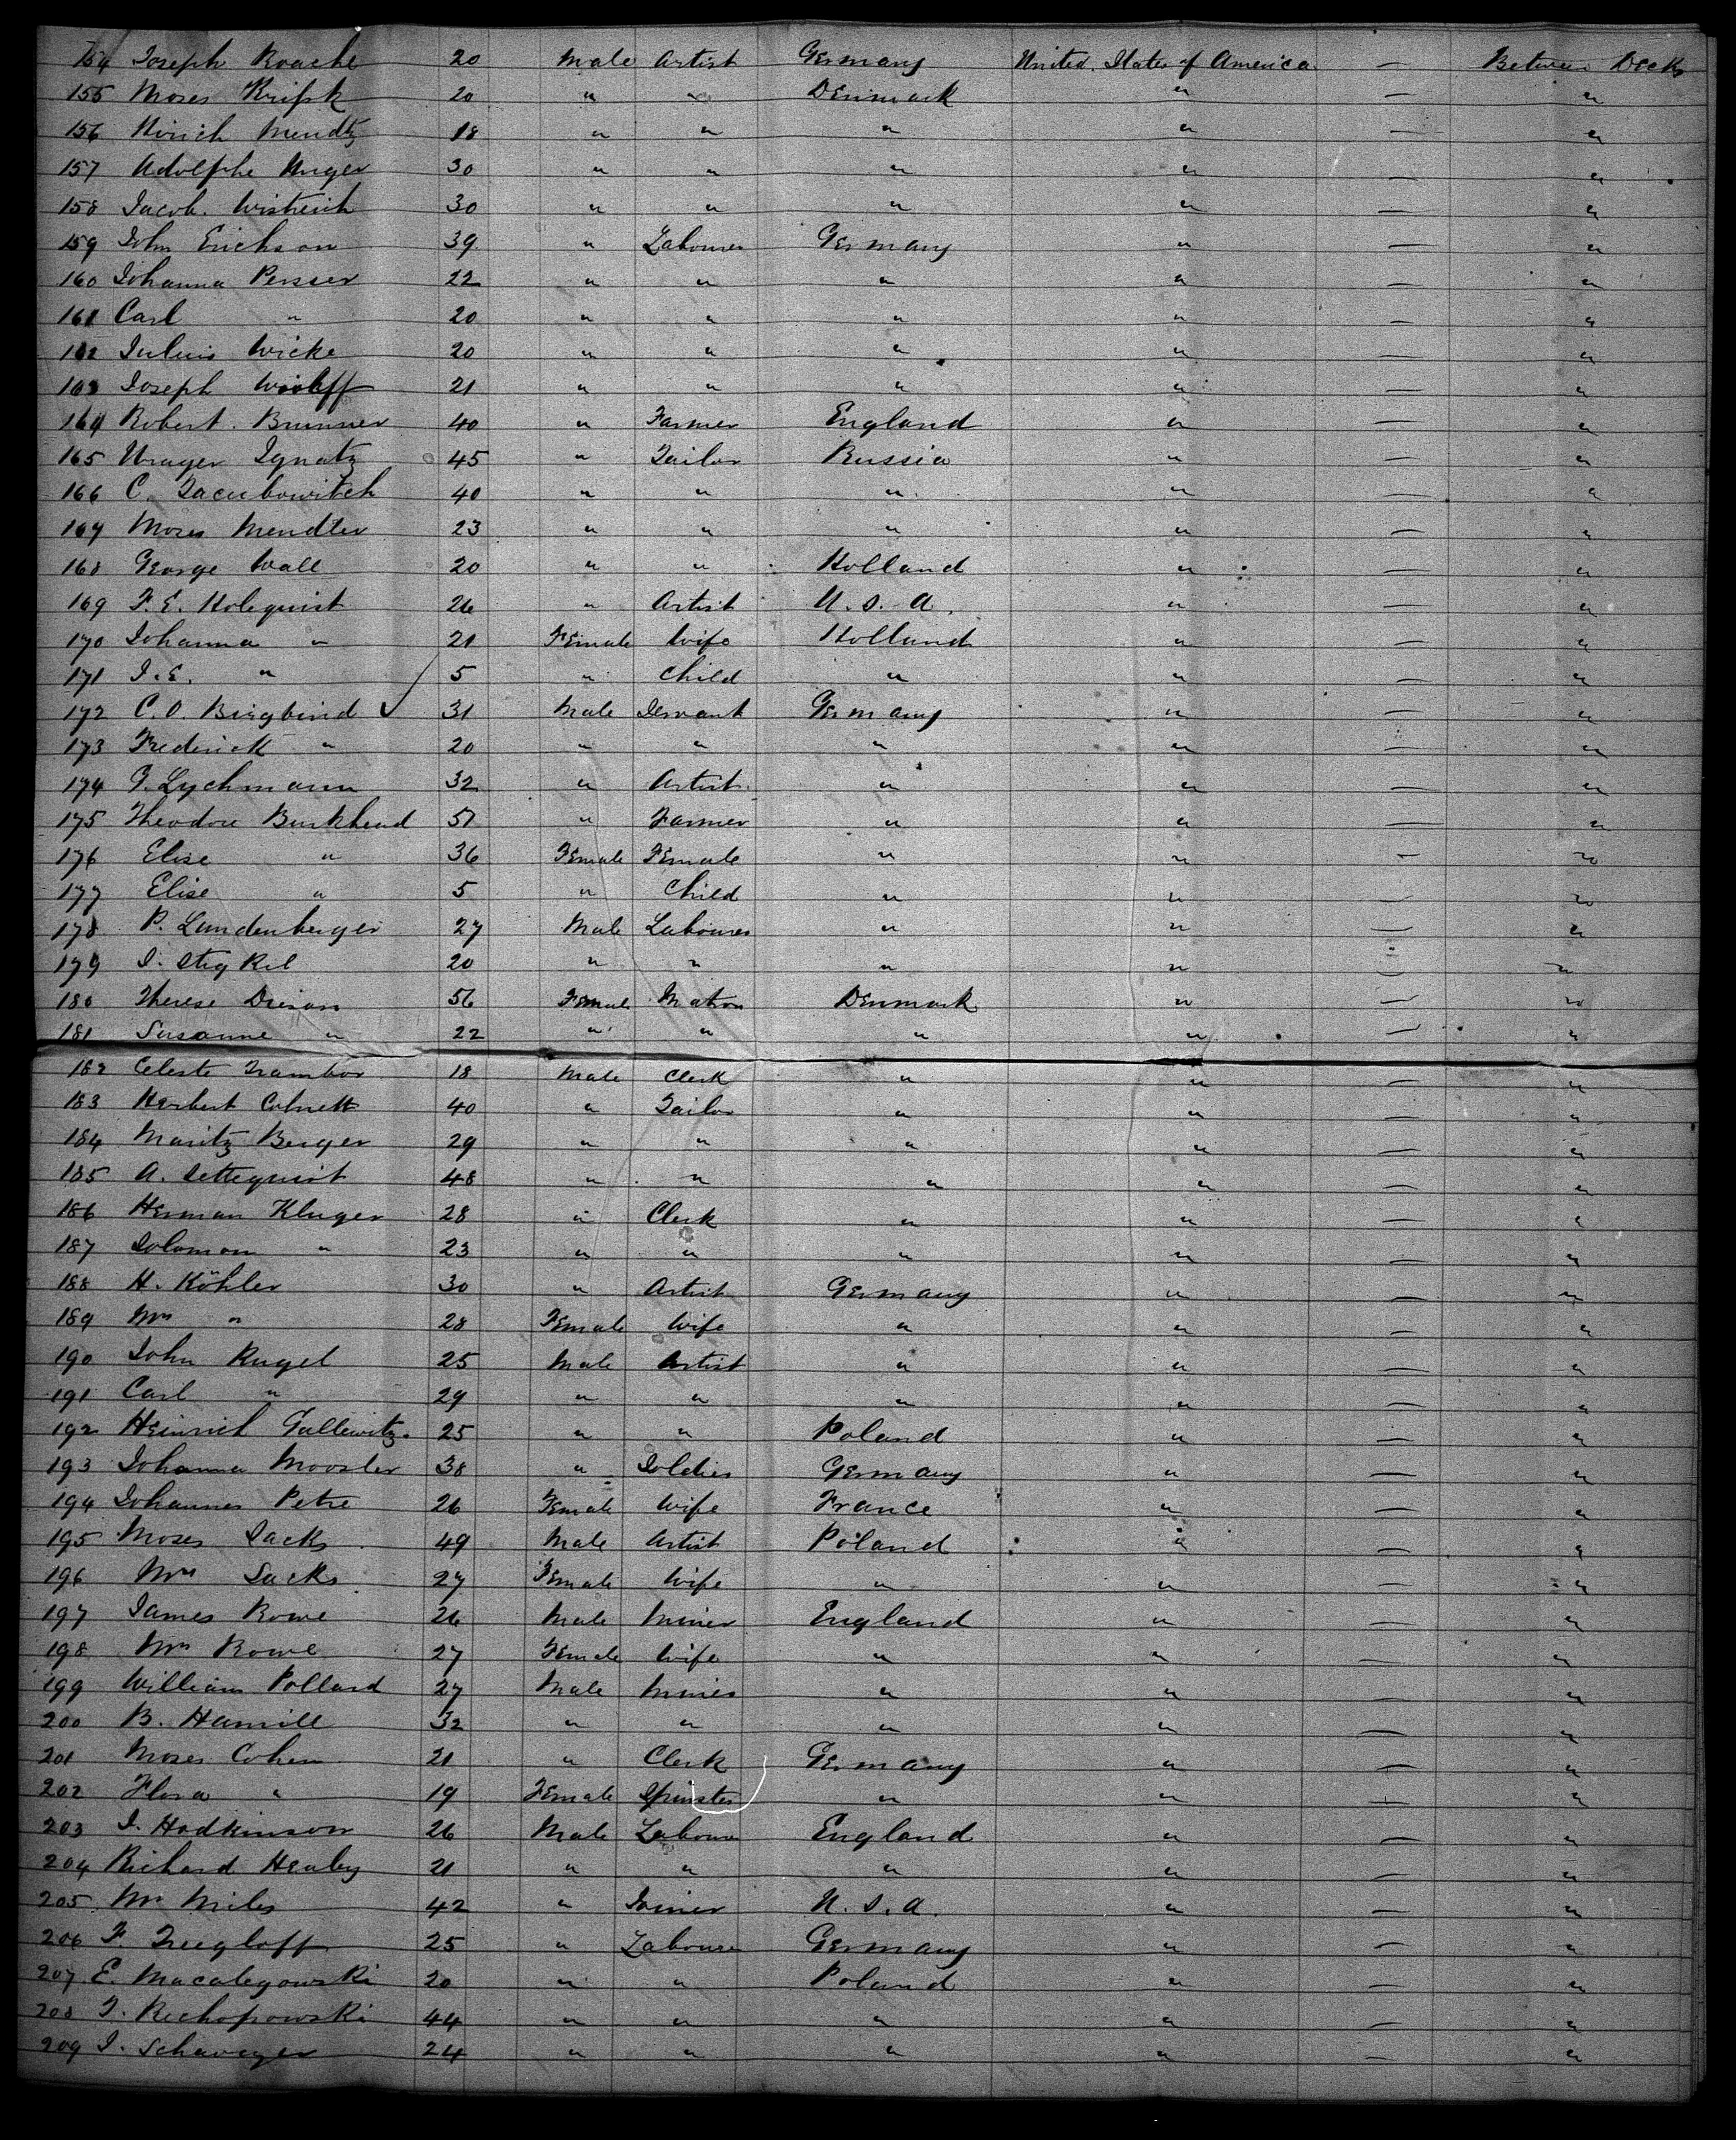 154 Joseph Roache 20 Male Artist Germany United States of America — Between Decks
155 Moses 20 " " Denmark " — "
156 Hirich Mendtz 18 " " " " — "
157 Adolphe Unger 30 " " " " — "
158 Jacob. Wistrich 30 " " " " — "
159 John Erickson 39 " Labourer Germany " — "
160 Johanna Persser 22 " " " " — "
161 Carl " 20 " " " " — "
162 Julius Wicke 20 " " " " — "
163 Joseph Woolff 21 " " " " — "
164 Robert. Brunner 40 " Farmer England " — "
165 Urager Ignatz 45 " Tailor Russia " — "
166 C. Jacubowitch 40 " " " " — "
167 Moses Mendter 23 " " " " — "
168 George Wall 20 " " Holland " — "
169 F. E. Holequist 26 " Artist U. S. A. " — "
170 Johanna " 21 Female Wife Holland " — "
171 J. E. " 5 " Child " " — "
172 C. O. Birgbind ✓ 31 Male Servant Germany " — "
173 Frederick " 20 " " " " — "
174 G. Lychmann 32 " Artist " " — "
175 Theodore Burkhend 51 " Farmer " " — "
176 Elise " 36 Female Female " " — "
177 Elise " 5 " Child " " — "
178 P. Lundenberger 27 Male Labourer " " — "
179 J. Stigkel 20 " " " " — "
180 Therese 56 Female Matron Denmark " — "
181 Susanne " 22 " " " " — "
182 Celeste Trambor 18 Male Clerk " " — "
183 Herbert Colnett 40 " Tailor " " — "
184 Maritz Berger 29 " " " " — "
185 A. Settequist 48 " " " " — "
186 Herman Kluger 28 " Clerk " " — "
187 Solomon " 23 " " " " — "
188 H. Köhler 30 " Artist Germany " — "
189 Mrs " 28 Female Wife " " — "
190 John Rugel 25 Male Artist " " — "
191 Carl " 29 " " " " — "
192 Heinrich Gullewitz 25 " " Poland " — "
193 Johanna Moosler 38 " Soldier Germany " — "
194 Johannes Petre 26 Female Wife France " — "
195 Moses Sacks 49 Male Artist Poland " — "
196 Mrs Sacks 27 Female Wife " " — "
197 James Rowe 26 Male Miner England " — "
198 Mrs Rowe 27 Female Wife " " — "
199 William Pollard 27 Male Miner " " — "
200 B. Hamill 32 " " " " — "
201 Moses Cohen 21 " Clerk Germany " — "
202 Flora " 19 Female Spinster " " — "
203 J. Hodkinson 26 Male Labourer England " — "
204 Richard Healey 21 " " " " — "
205 Mr Miles 42 " Joiner U. S. A. " — "
206 F Treegloff 25 " Labourer Germany " — "
207 E. Macalegowski 20 " " Poland " — "
208 J. Rechopowski 44 " " " " — "
209 J. Schaweger 24 " " " " — "